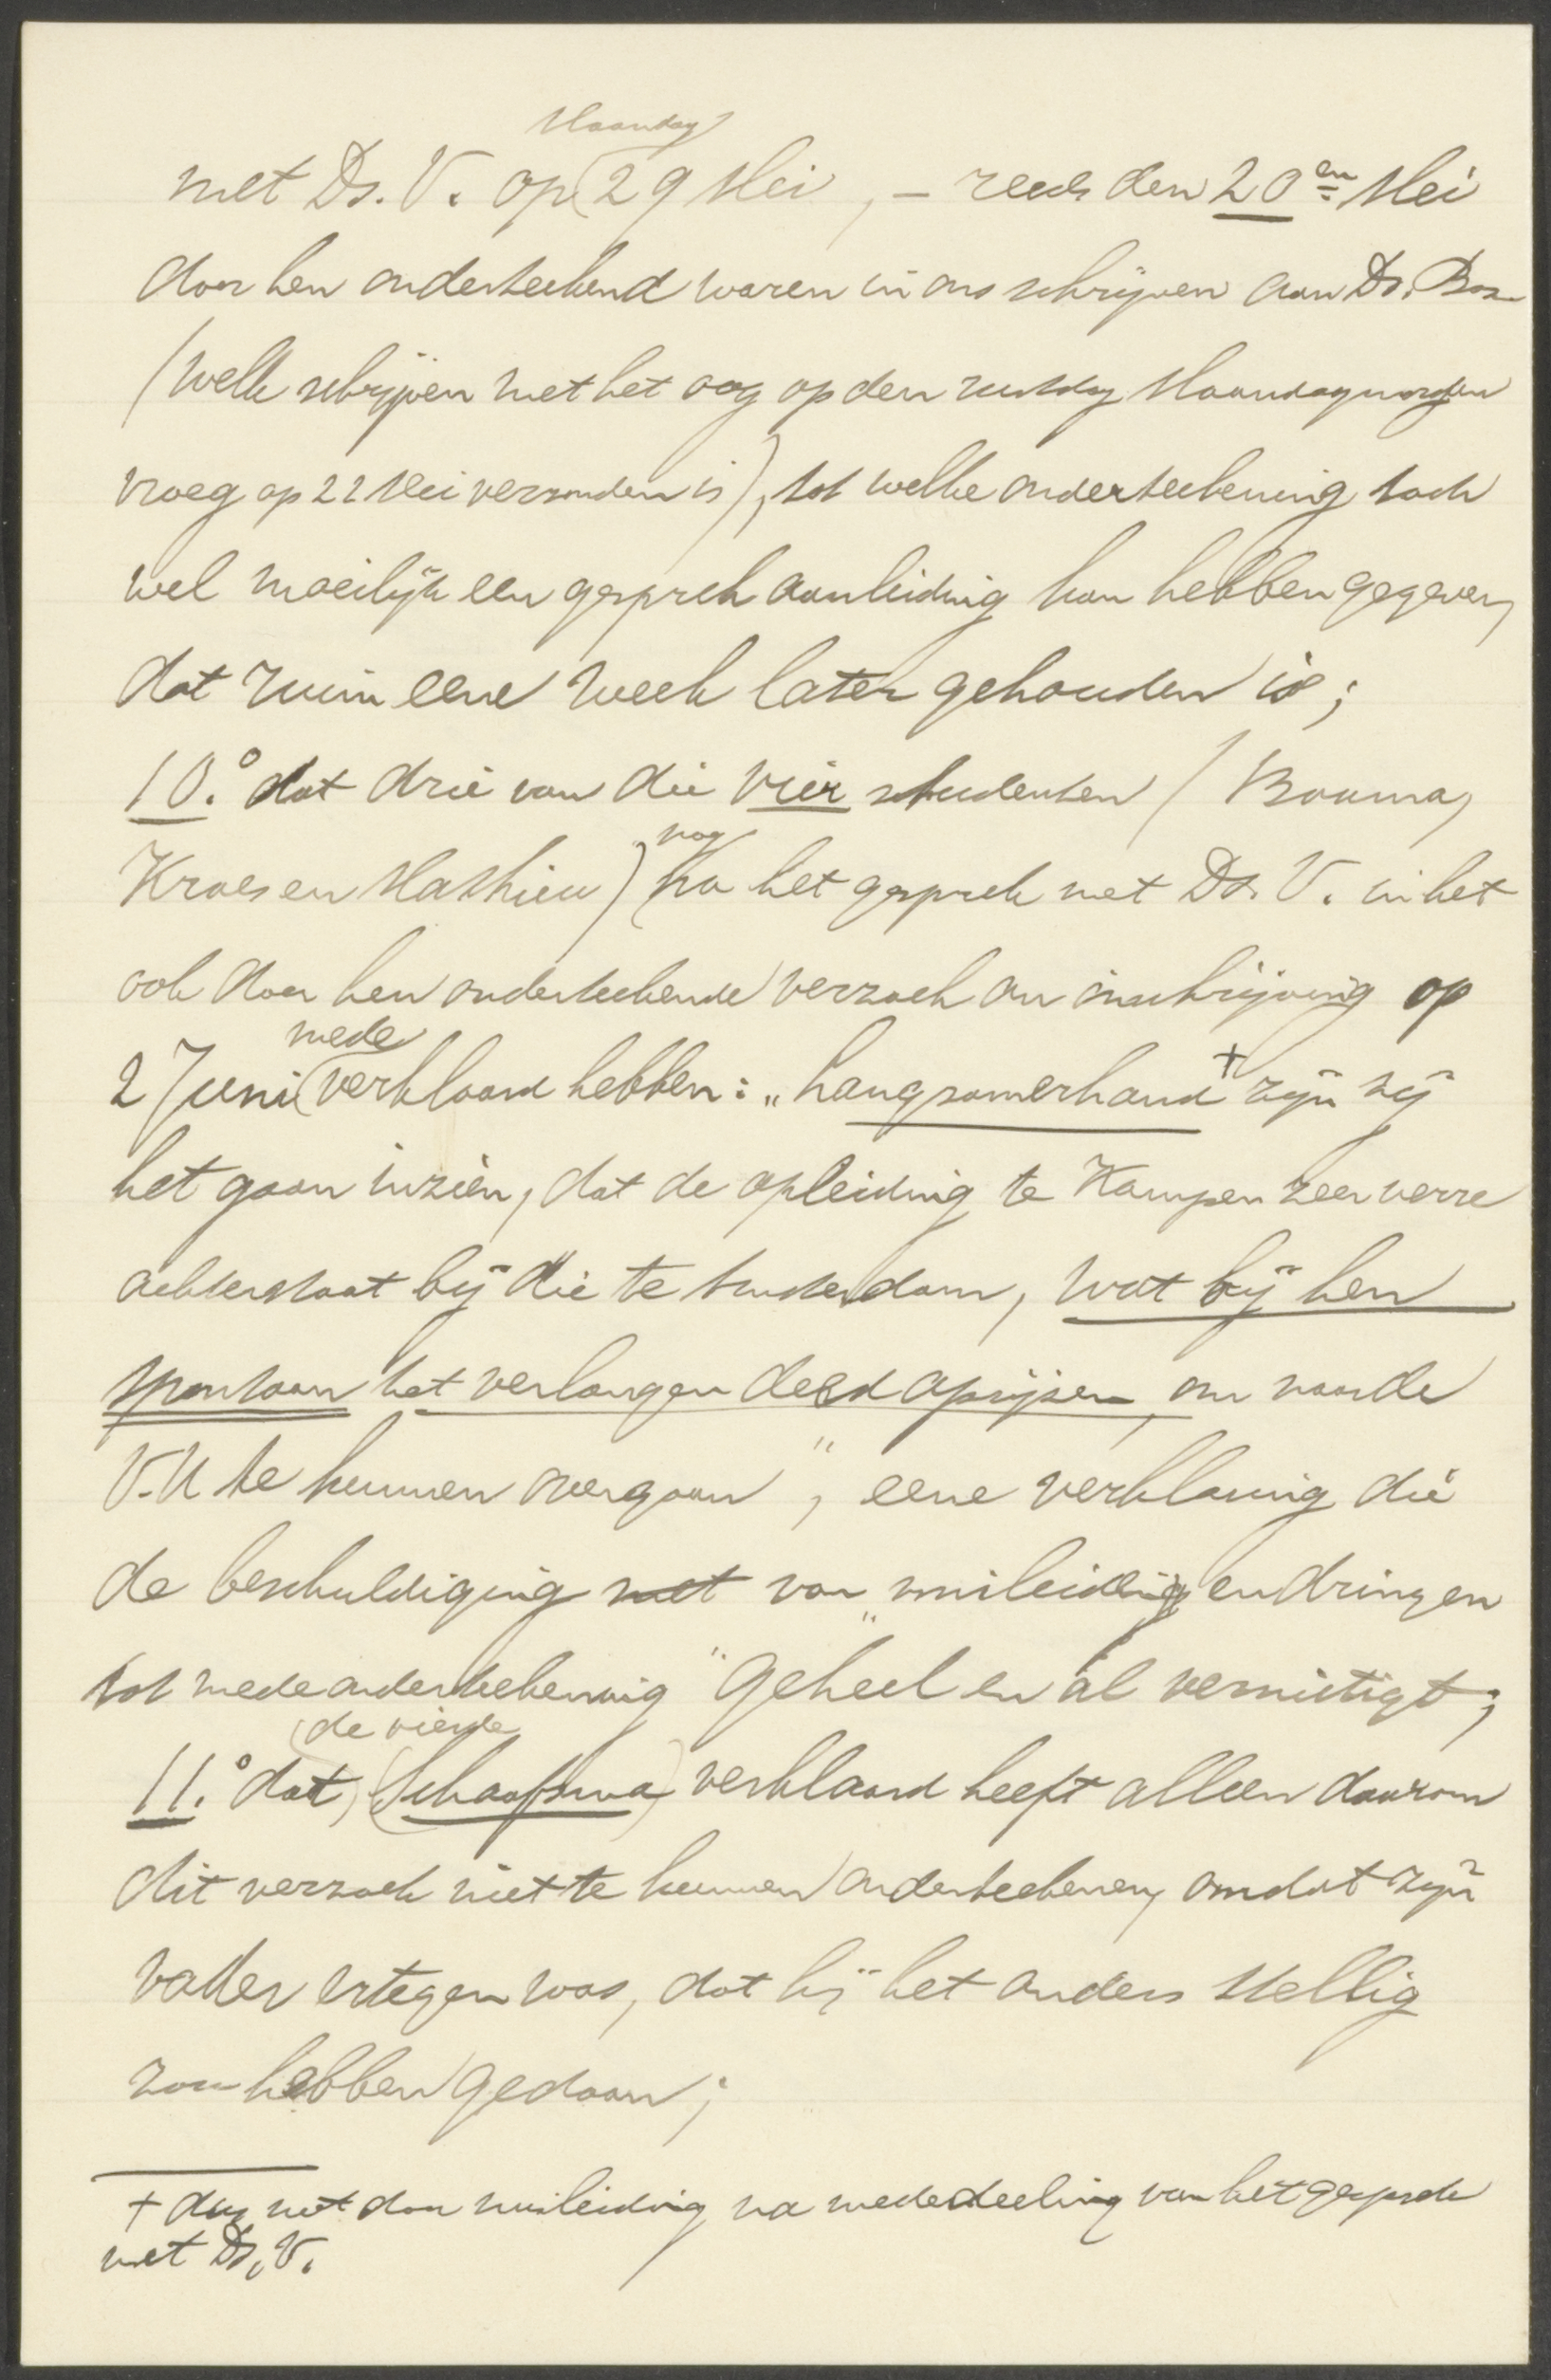 Maandag
met Ds. V. op 29 Mei, – reeds den 20en Mei
door hen onderteekend waren in ons schrijven aan Ds. Bos
(welk schrijven met het oog op den rustdag Maandagmorgen
vroeg op 22 Mei verzonden is), tot welke onderteekening toch
wel moeilijk een gesprek aanleiding kan hebben gegeven,
dat ruim eene week later gehouden is;
10.° dat drie van die vier studenten (Bouma,
nog
Kroes en Mathieu) na het gesprek met Ds. V. in het
ook door hen onderteekende verzoek om inschrijving op
mede
2 Juni verklaard hebben: „langzamerhand + zijn zij
het gaan inzien, dat de opleiding te Kampen zeer verre
achterstaat bij die te Amsterdam, wat bij hen
spontaan het verlangen deed oprijzen, om naar de
V.U te kunnen overgaan", eene verklaring die
de beschuldiging met van „misleiding en dringen
tot medeonderteekening" geheel en al vernietigt;
de vierde
11.° dat, (Schaafsma) verklaard heeft alleen daarom
dit verzoek niet te kunnen onderteekenen, omdat zijn
vader ertegen was, dat hij het anders stellig
zou hebben gedaan;
+ dus niet door misleiding na mededeeling van het gesprek
met Ds. V.